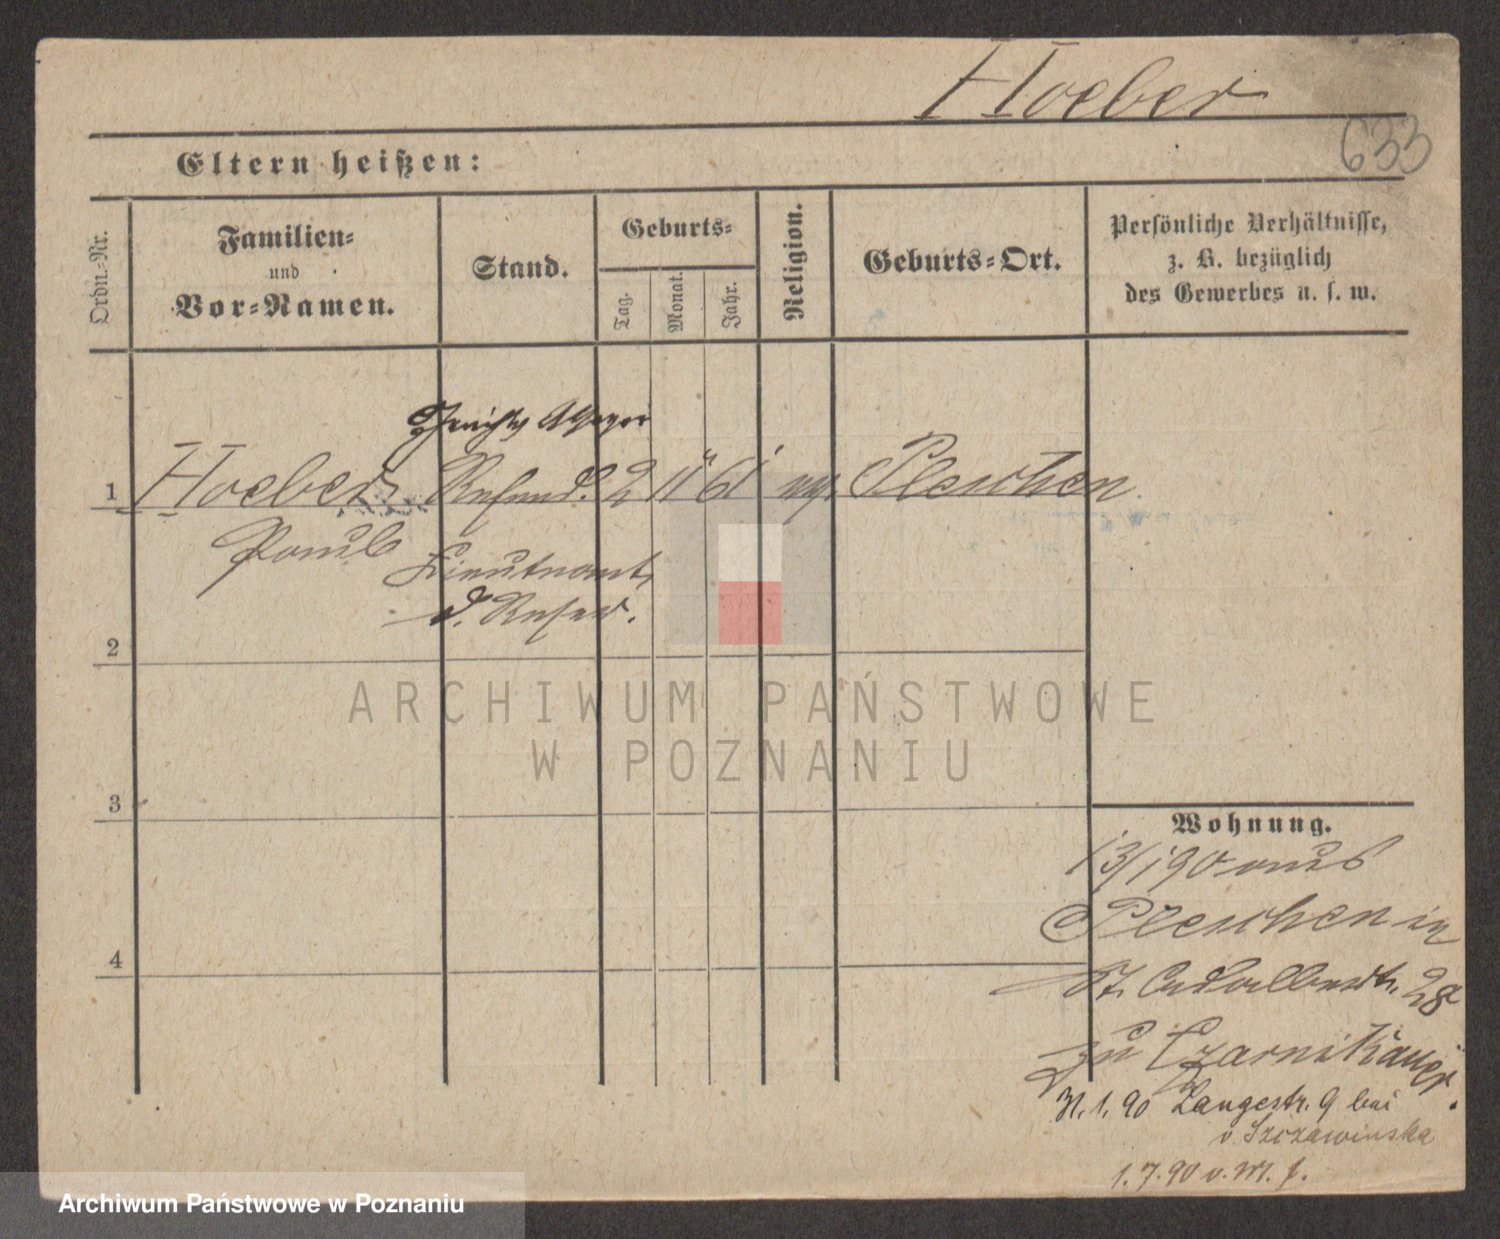 Hoeber
633
Eltern heißen:
Ordn.-Nr.
Familien-
und
Vor-Namen.
Stand.
Geburts-
Tag.
Monat.
Jahr.
Religion.
Geburts-Ort.
Persönliche Verhältnisse,
z. B. bezüglich
des Gewerbes u. s. w.
1 Hoeber Referend. 2 11 61 Pleschen
Paul
Lieutenant
d. Reserv.
2
3
4
Wohnung.
13/1 90 aus
Pleschen in
St. Adalbertstr. 28
zu Czarnikauer.
31.1.90 Langestr. 9 bei
v. Szczawinska
1.7.90
ARCHIWUM PAŃSTWOWE
W POZNANIU
Archiwum Państwowe w Poznaniu